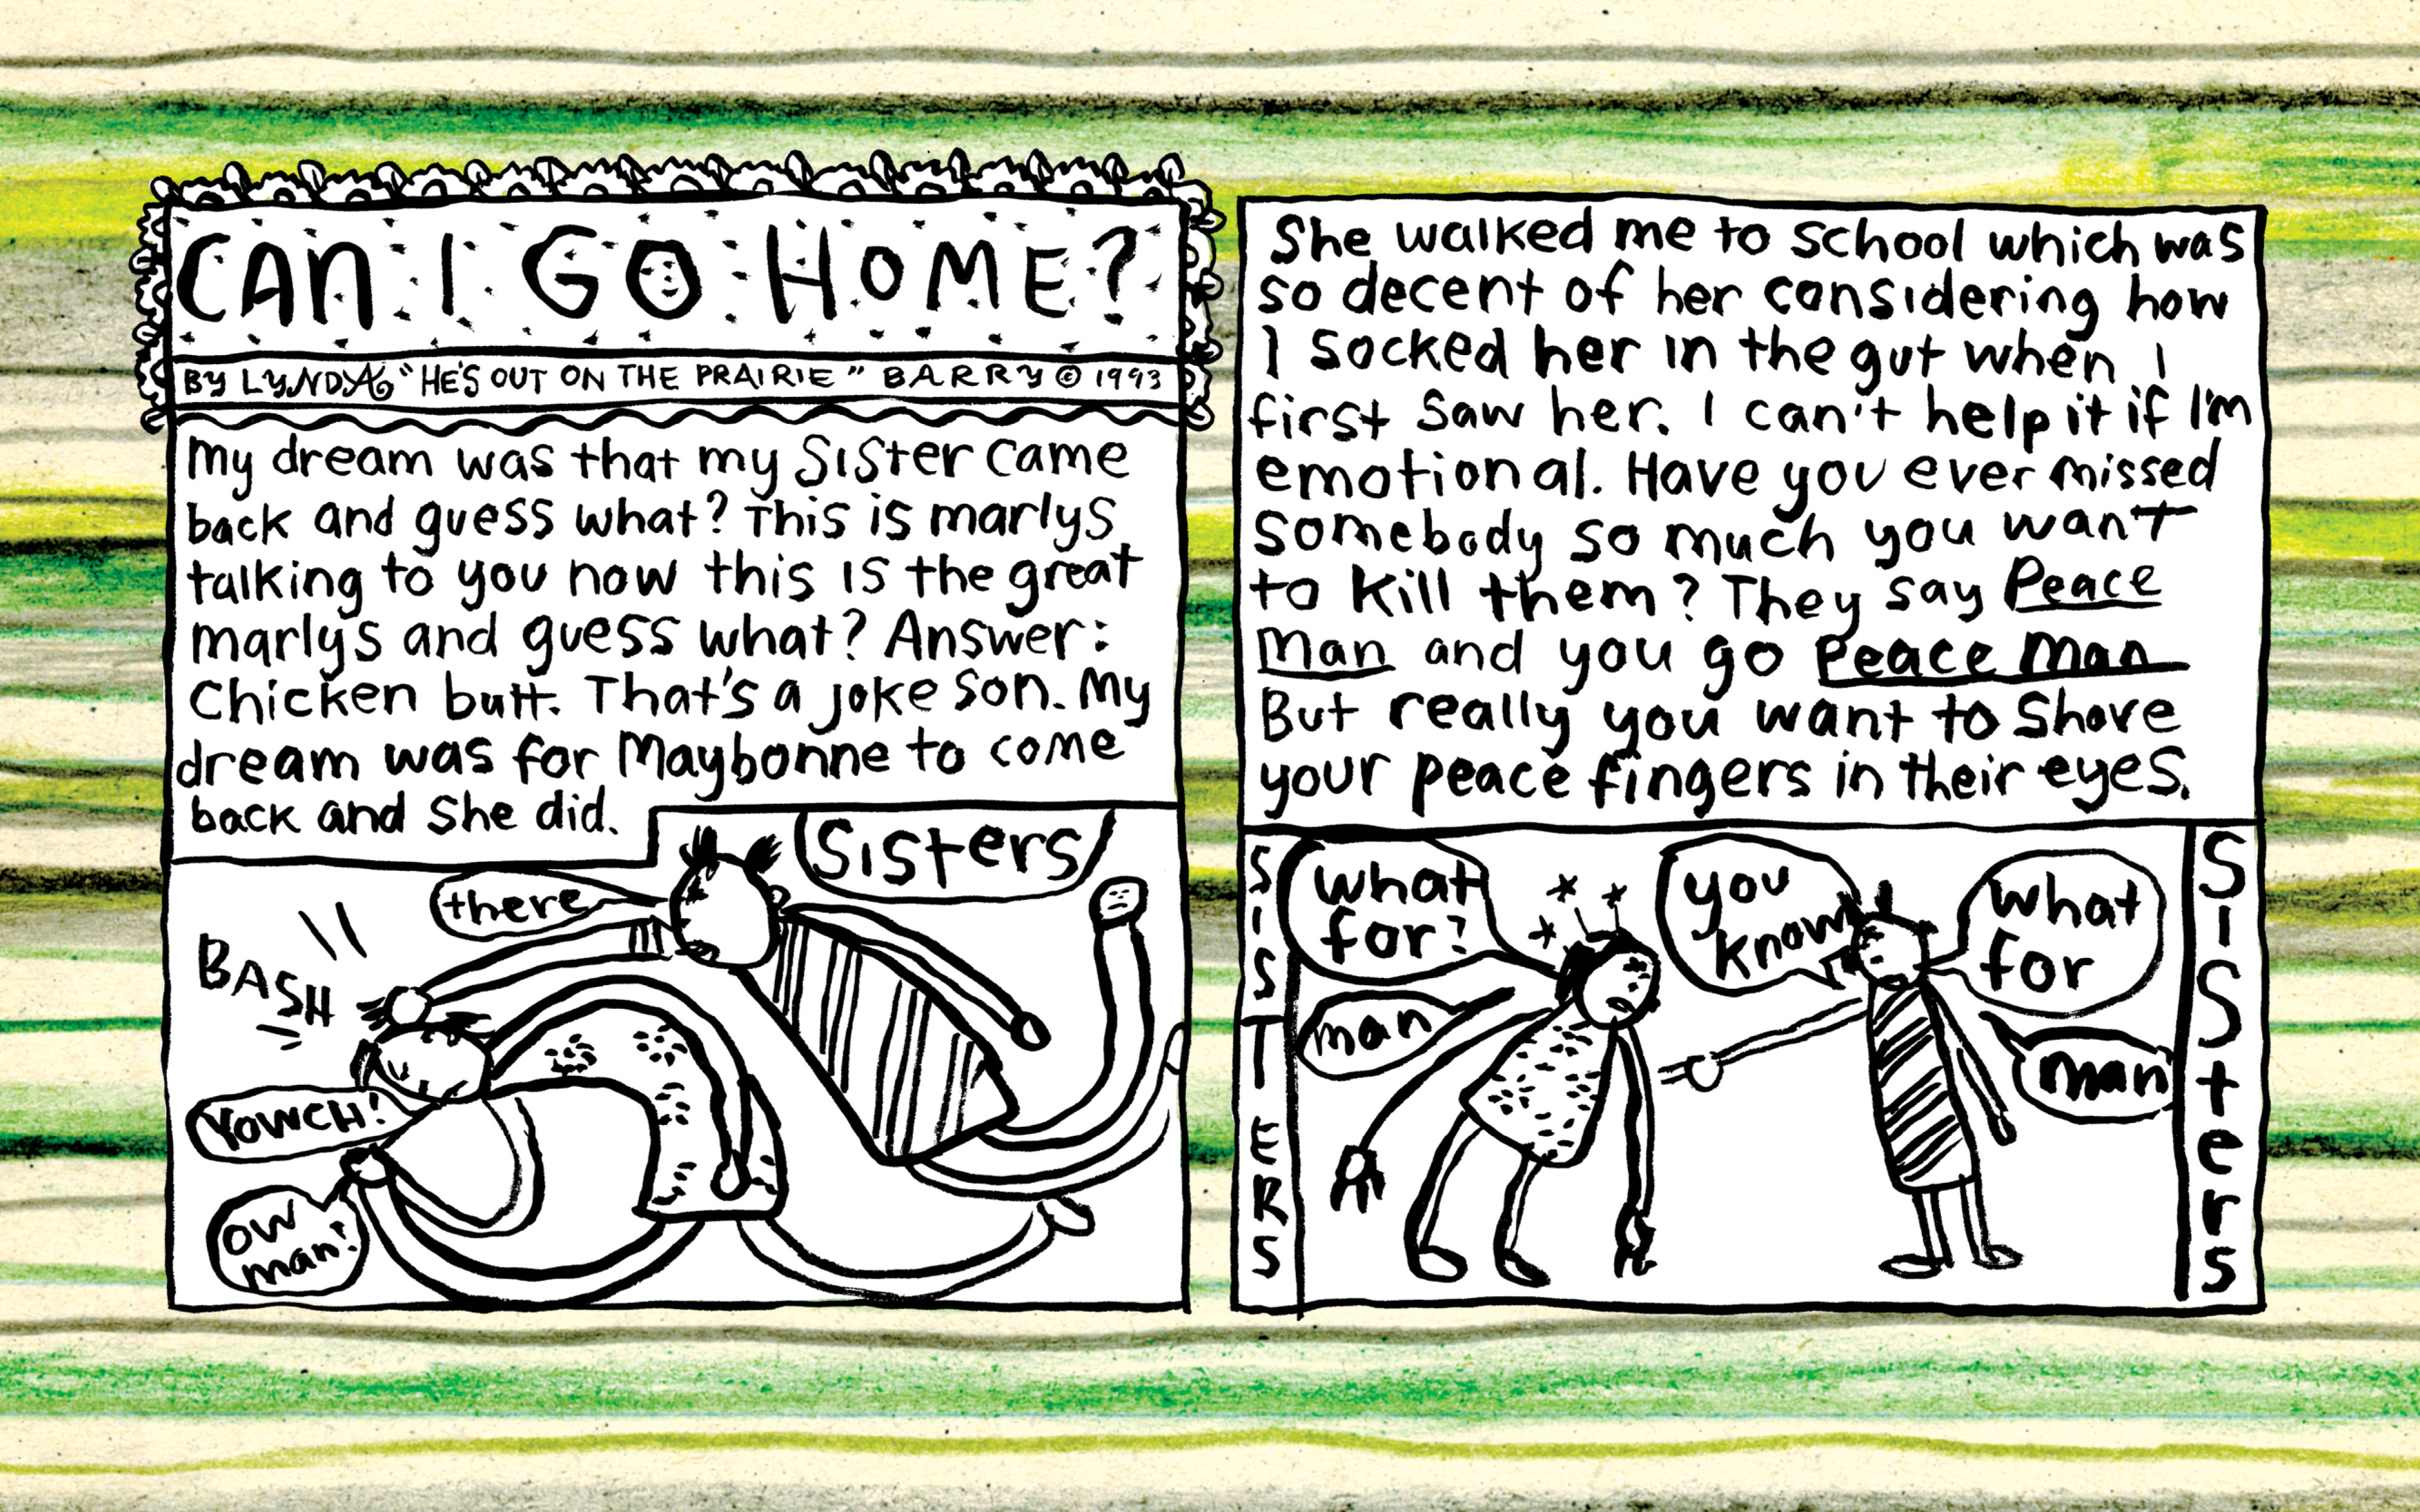 CAN I GO HOME?
BY LYNDA "HE'S OUT ON THE PRAIRIE" BARRY © 1993
My dream was that my Sister came
back and guess what? This is marlys
talking to you now this is the great
marlys and guess what? Answer:
Chicken butt. That's a joke son. My
dream was for Maybonne to come
back and she did.
Sisters
there
BASH
YOWCH!
OW
man!
She walked me to school which was
so decent of her considering how
I socked her in the gut when I
first saw her. I can't help it if I'm
emotional. Have you ever missed
somebody so much you want
to kill them? They say Peace
Man and you go Peace Man
But really you want to shove
your peace fingers in their eyes.
SISTERS
what
for?
man
you
know
what
for
man
SISters